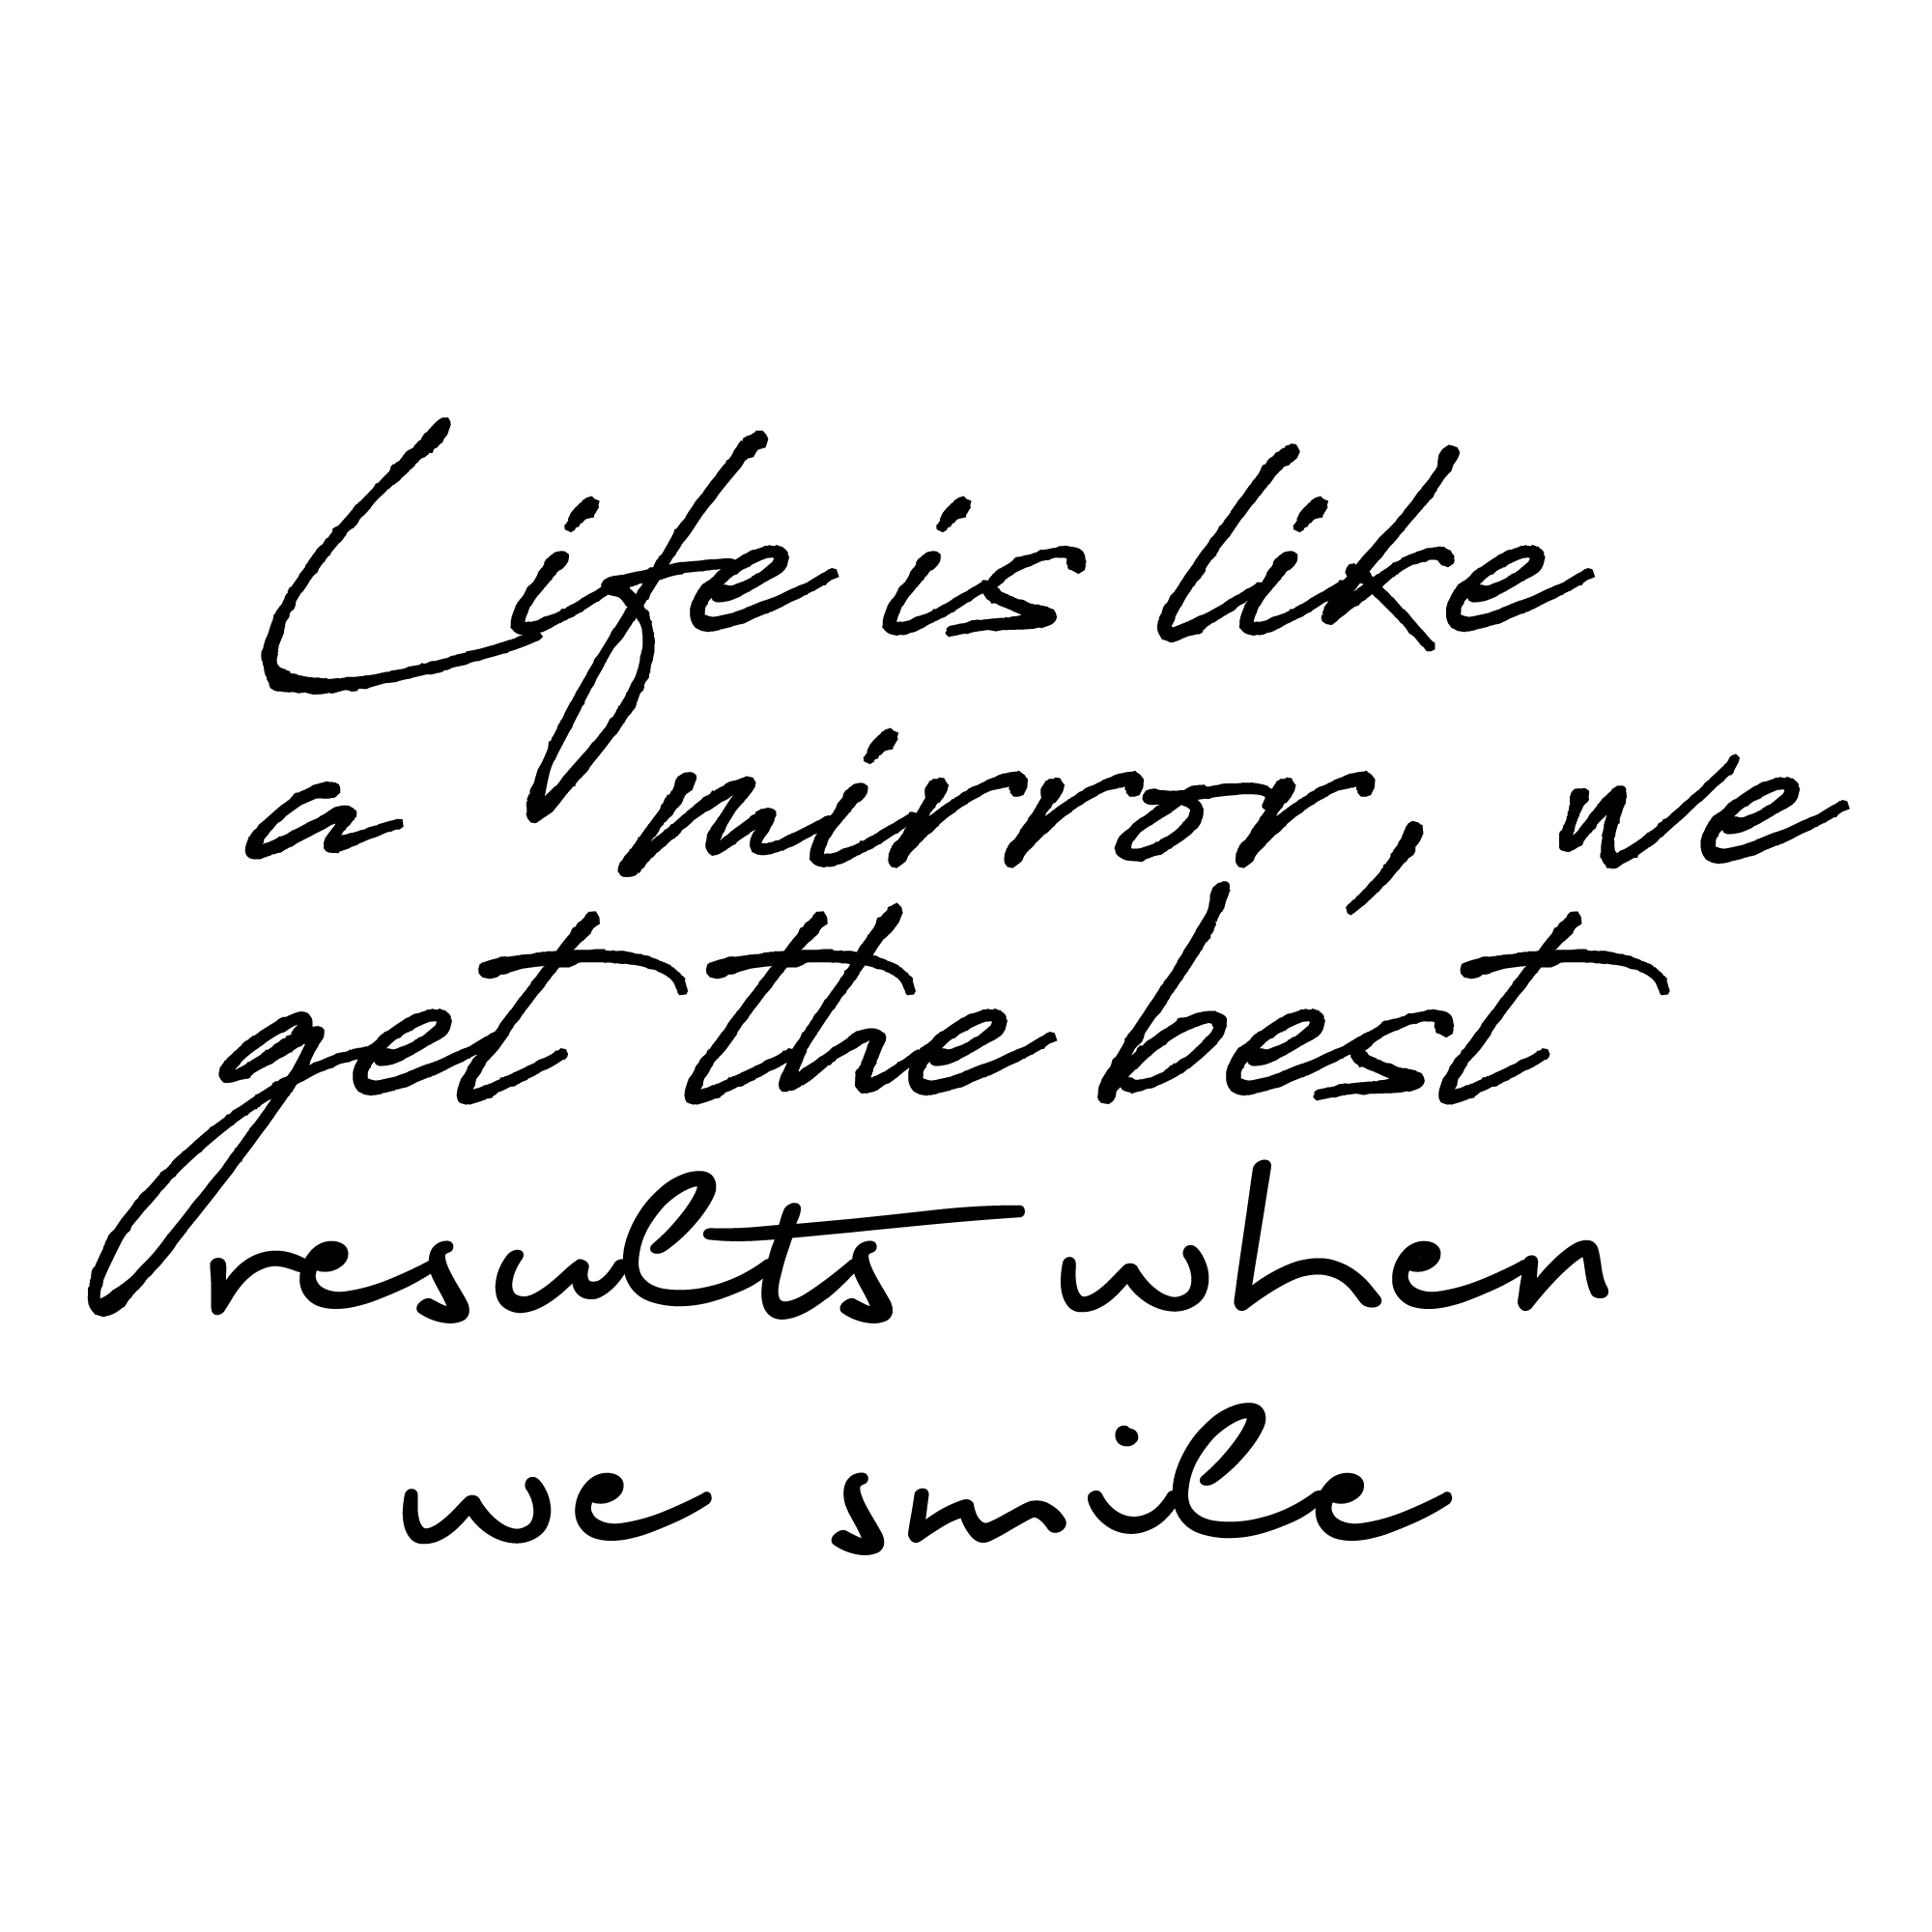 Life is like
a mirror, we
get the best
results when
we smile